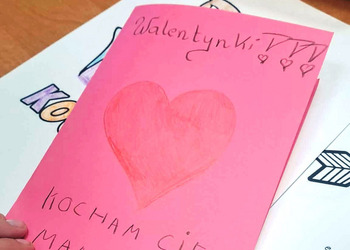 Walentynki
KOCHAM CIĘ
KO